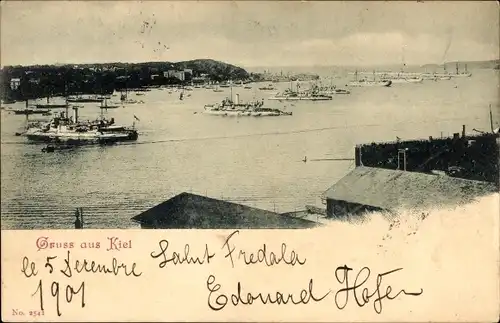 Gruss aus Kiel
le 5 Decembre
1901
Salut Fredala
Edouard Hofer
No. 2541